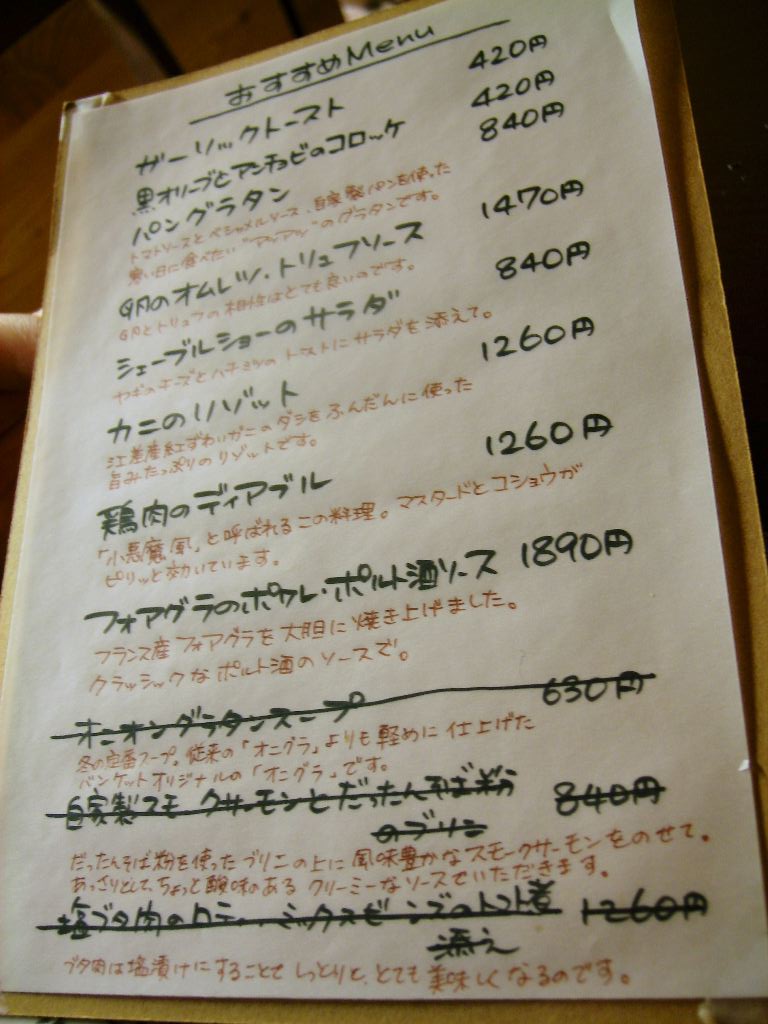 おすすめMenu
ガーリックトースト 420円
黒オリーブとアンチョビのコロッケ 420円
パングラタン 840円
トマトソースとベシャメルソース、自家製パンを使った
寒い日に食べたい"アツアツ"のグラタンです。
卵のオムレツ・トリュフソース 1470円
卵とトリュフの相性はとても良いのです。
シェーブルショーのサラダ 840円
ヤギのチーズとハチミツのトーストにサラダを添えて。
カニのリゾット 1260円
江差産紅ずわいがにのダシをふんだんに使った
旨みたっぷりのリゾットです。
鶏肉のディアブル 1260円
「小悪魔風」と呼ばれるこの料理。マスタードとコショウが
ピリッと効いています。
フォアグラのポワレ・ポルト酒ソース 1890円
フランス産フォアグラを大胆に焼き上げました。
クラッシックなポルト酒のソースで。
オニオングラタンスープ 630円
冬の定番スープ。従来の「オニグラ」よりも軽めに仕上げた
バンケットオリジナルの「オニグラ」です。
自家製スモークサーモンとだったんそば粉 840円
のブリニ
だったんそば粉を使ったブリニの上に風味豊かなスモークサーモンをのせて。
あっさりとして、ちょっと酸味のあるクリーミーなソースでいただきます。
塩ブタ肉の ミックスビーンズのトマト煮 1260円
添え
ブタ肉は塩漬けにすることでしっとりと、とても美味しくなるのです。